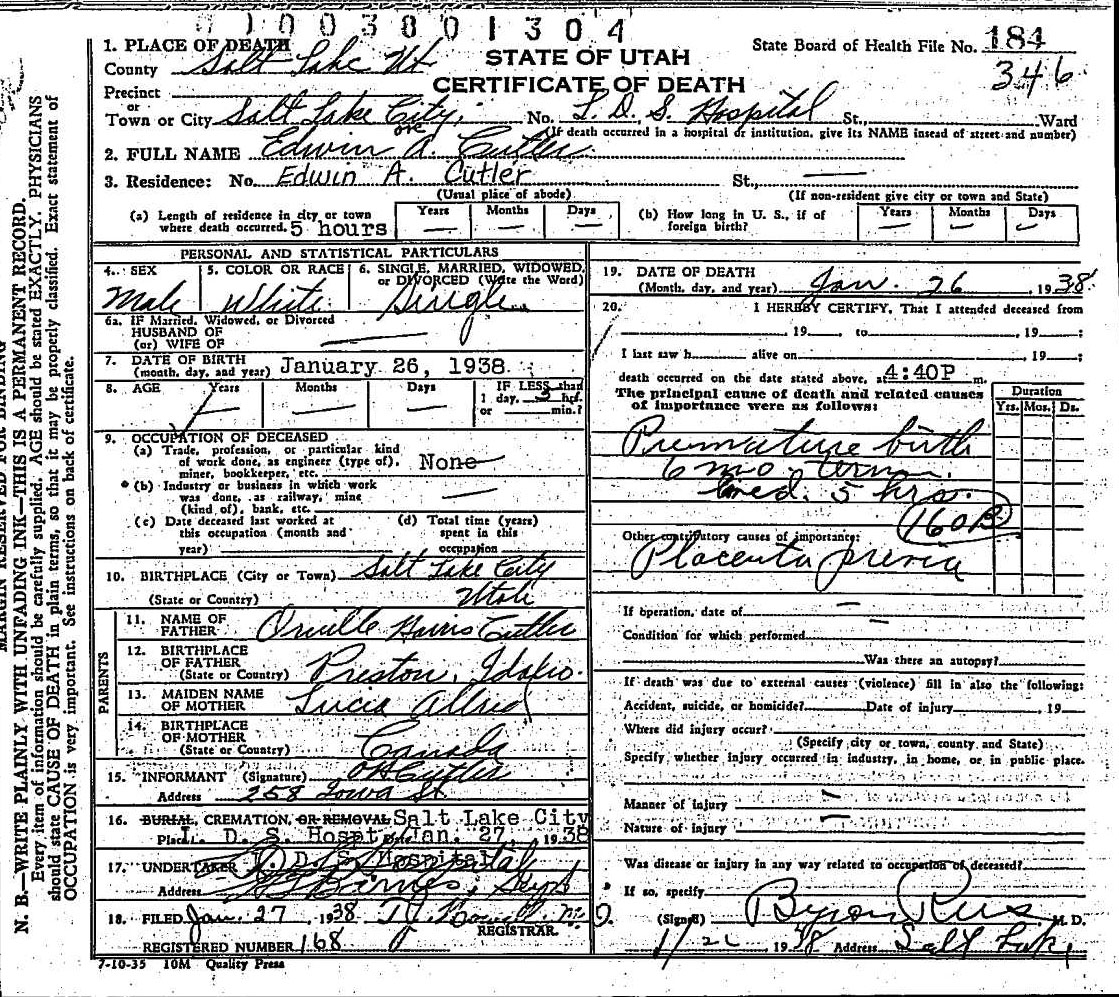 1003801304
State Board of Health File No. 184
346
STATE OF UTAH
CERTIFICATE OF DEATH
1. PLACE OF DEATH
County Salt Lake Ut
Precinct
or
Town or City Salt Lake City, No. L. D. S. Hospital St., Ward
(If death occurred in a hospital or institution, give its NAME insead of street and number)
2. FULL NAME Edwin A. Cutler
3. Residence: No. Edwin A. Cutler St., —
(Usual place of abode) (If non-resident give city or town and State)
(a) Length of residence in city or town where death occurred. 5 hours Years — Months — Days —
(b) How long in U. S., if of foreign birth? Years — Months — Days —
PERSONAL AND STATISTICAL PARTICULARS
4. SEX Male
5. COLOR OR RACE White
6. SINGLE, MARRIED, WIDOWED, or DIVORCED (Write the Word) Single
6a. IF Married, Widowed, or Divorced
HUSBAND OF
(or) WIFE OF —
7. DATE OF BIRTH (month, day, and year) January 26, 1938
8. AGE Years — Months — Days — IF LESS than 1 day, 5 hrs. or min.?
9. OCCUPATION OF DECEASED
(a) Trade, profession, or particular kind of work done, as engineer (type of), miner, bookkeeper, etc. None
(b) Industry or business in which work was done, as railway, mine (kind of), bank, etc. —
(c) Date deceased last worked at this occupation (month and year)
(d) Total time (years) spent in this occupation
10. BIRTHPLACE (City or Town) Salt Lake City
(State or Country) Utah
PARENTS
11. NAME OF FATHER Orville Harris Cutler
12. BIRTHPLACE OF FATHER (State or Country) Preston, Idaho
13. MAIDEN NAME OF MOTHER Lucia Allred
14. BIRTHPLACE OF MOTHER (State or Country) Canada
15. INFORMANT (Signature) O H Cutler
Address 258 Iowa St.
16. BURIAL, CREMATION, OR REMOVAL Salt Lake City
Place L. D. S. Hospt. Jan. 27, 1938
17. UNDERTAKER L. D. S. Hospital
Address Barnes, Supt
18. FILED Jan. 27 1938 M. D.
REGISTRAR.
REGISTERED NUMBER 168
7-10-35 10M Quality Press
19. DATE OF DEATH (Month, day, and year) Jan. 26, 1938
20. I HEREBY CERTIFY, That I attended deceased from
19 to 19 ;
I last saw h alive on 19 ;
death occurred on the date stated above, at 4:40P m.
The principal cause of death and related causes of importance were as follows:
Duration
Yrs. Mos. Ds.
Premature birth
6 mo term.
Lived 5 hrs.
160B
Other contributory causes of importance:
Placenta previa
If operation, date of —
Condition for which performed —
Was there an autopsy?
If death was due to external causes (violence) fill in also the following:
Accident, suicide, or homicide? Date of injury 19
Where did injury occur?
(Specify city or town, county and State)
Specify whether injury occurred in industry, in home, or in public place.
Manner of injury —
Nature of injury —
Was disease or injury in any way related to occupation of deceased?
If so, specify
(Signed) Byron Rees M. D.
1938 Address Salt Lake
MARGIN RESERVED FOR BINDING
N. B.—WRITE PLAINLY WITH UNFADING INK—THIS IS A PERMANENT RECORD.
Every item of information should be carefully supplied. AGE should be stated EXACTLY. PHYSICIANS
should state CAUSE OF DEATH in plain terms, so that it may be properly classified. Exact statement of
OCCUPATION is very important. See instructions on back of certificate.